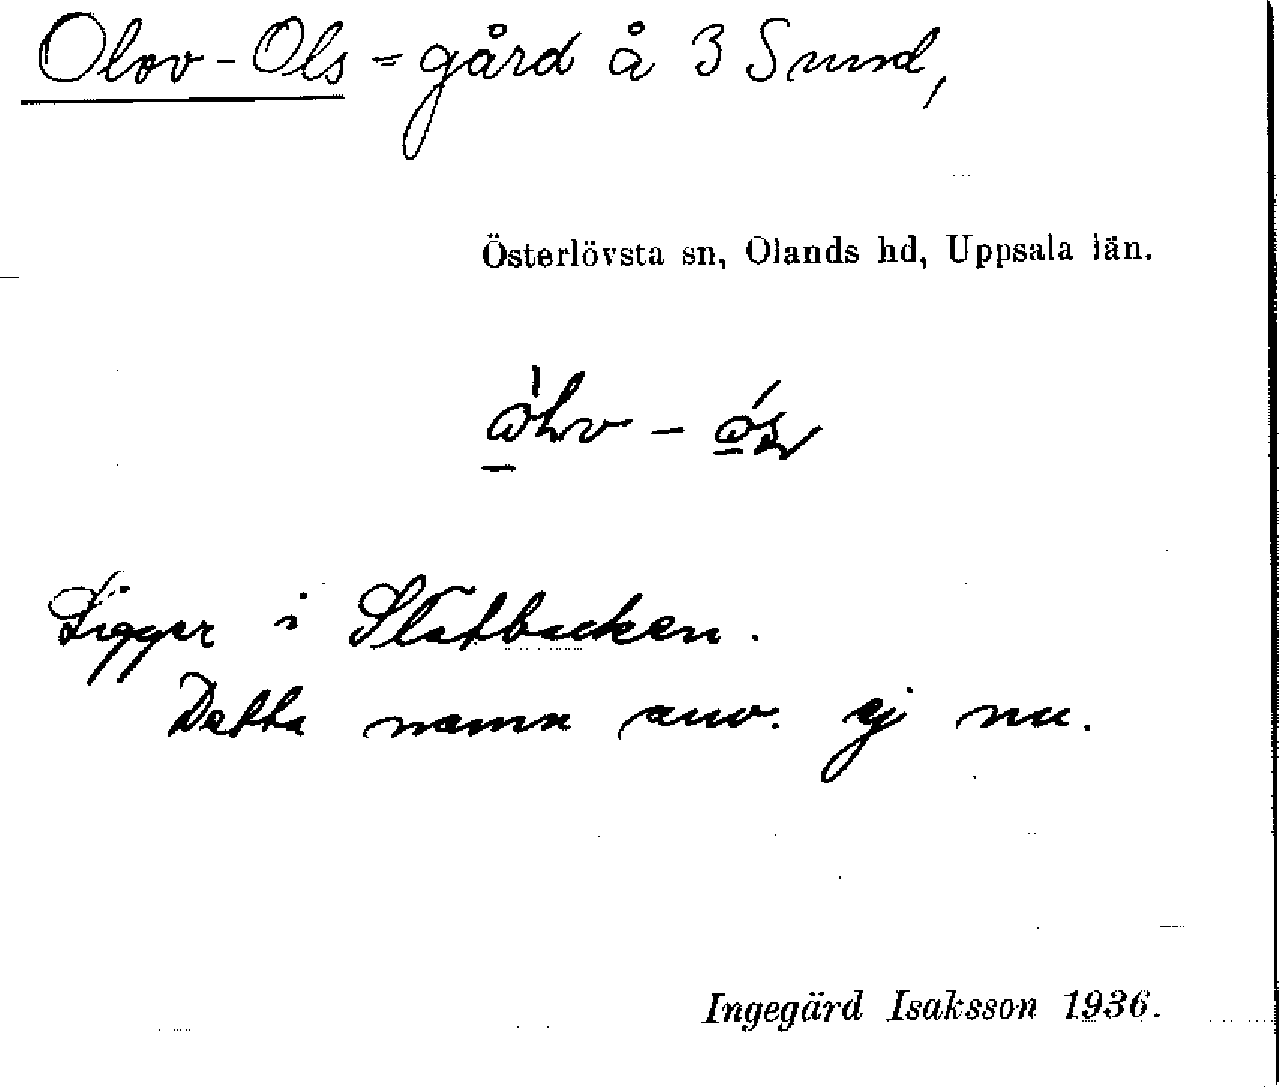 Olov-Ols=gård å 3 Sund,
Österlövsta sn, Olands hd, Uppsala län.
Ligger i Slätbacken.
Detta namn anv. ej nu.
Ingegärd Isaksson 1936.